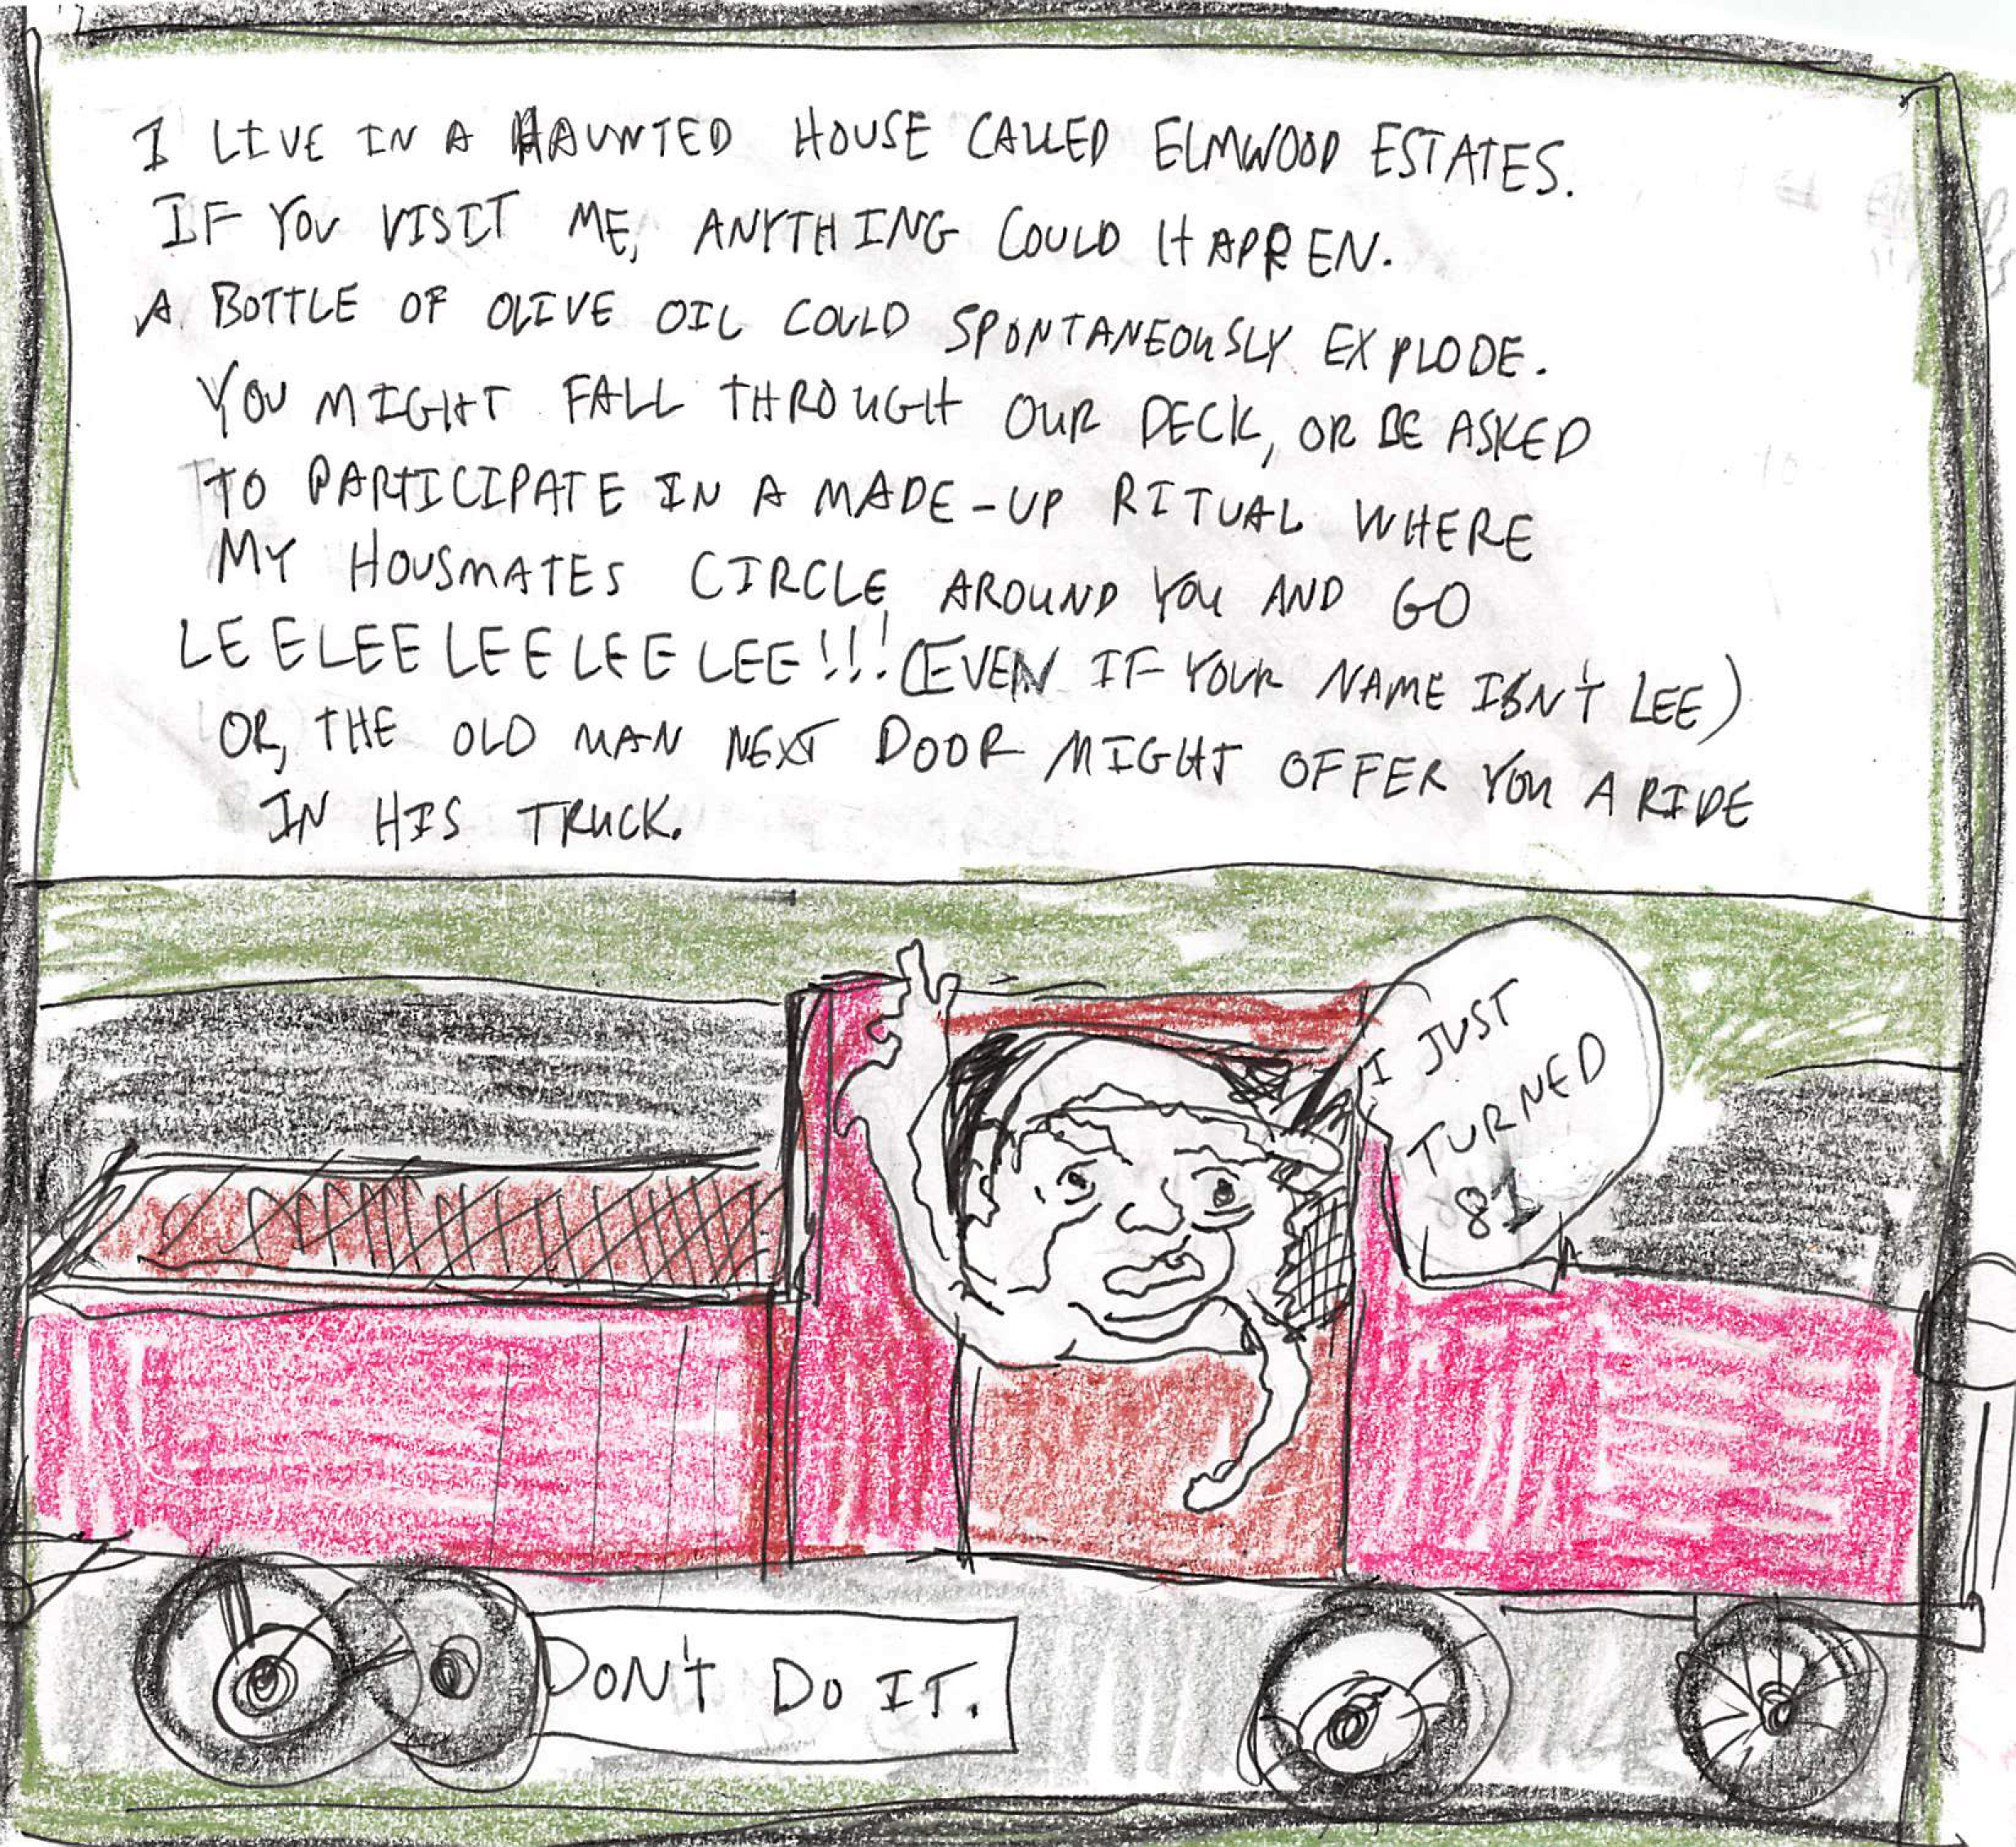 I LIVE IN A HAUNTED HOUSE CALLED ELMWOOD ESTATES.
IF YOU VISIT ME, ANYTHING COULD HAPPEN.
A BOTTLE OF OLIVE OIL COULD SPONTANEOUSLY EXPLODE.
YOU MIGHT FALL THROUGH OUR DECK, OR BE ASKED
TO PARTICIPATE IN A MADE-UP RITUAL WHERE
MY HOUSMATES CIRCLE AROUND YOU AND GO
LEELEELEELEELEE!!! (EVEN IF YOUR NAME ISN'T LEE)
OR, THE OLD MAN NEXT DOOR MIGHT OFFER YOU A RIDE
IN HIS TRUCK.
I JUST
TURNED
81
DON'T DO IT.